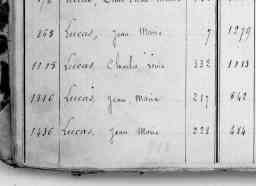 168 Lucas, Jean Marie 7 1279
1115 Lucas, Charles Louis 332 1113
1316 Lucas, Jean Marie 217 642
1436 Lucas, Jean Marie 228 484